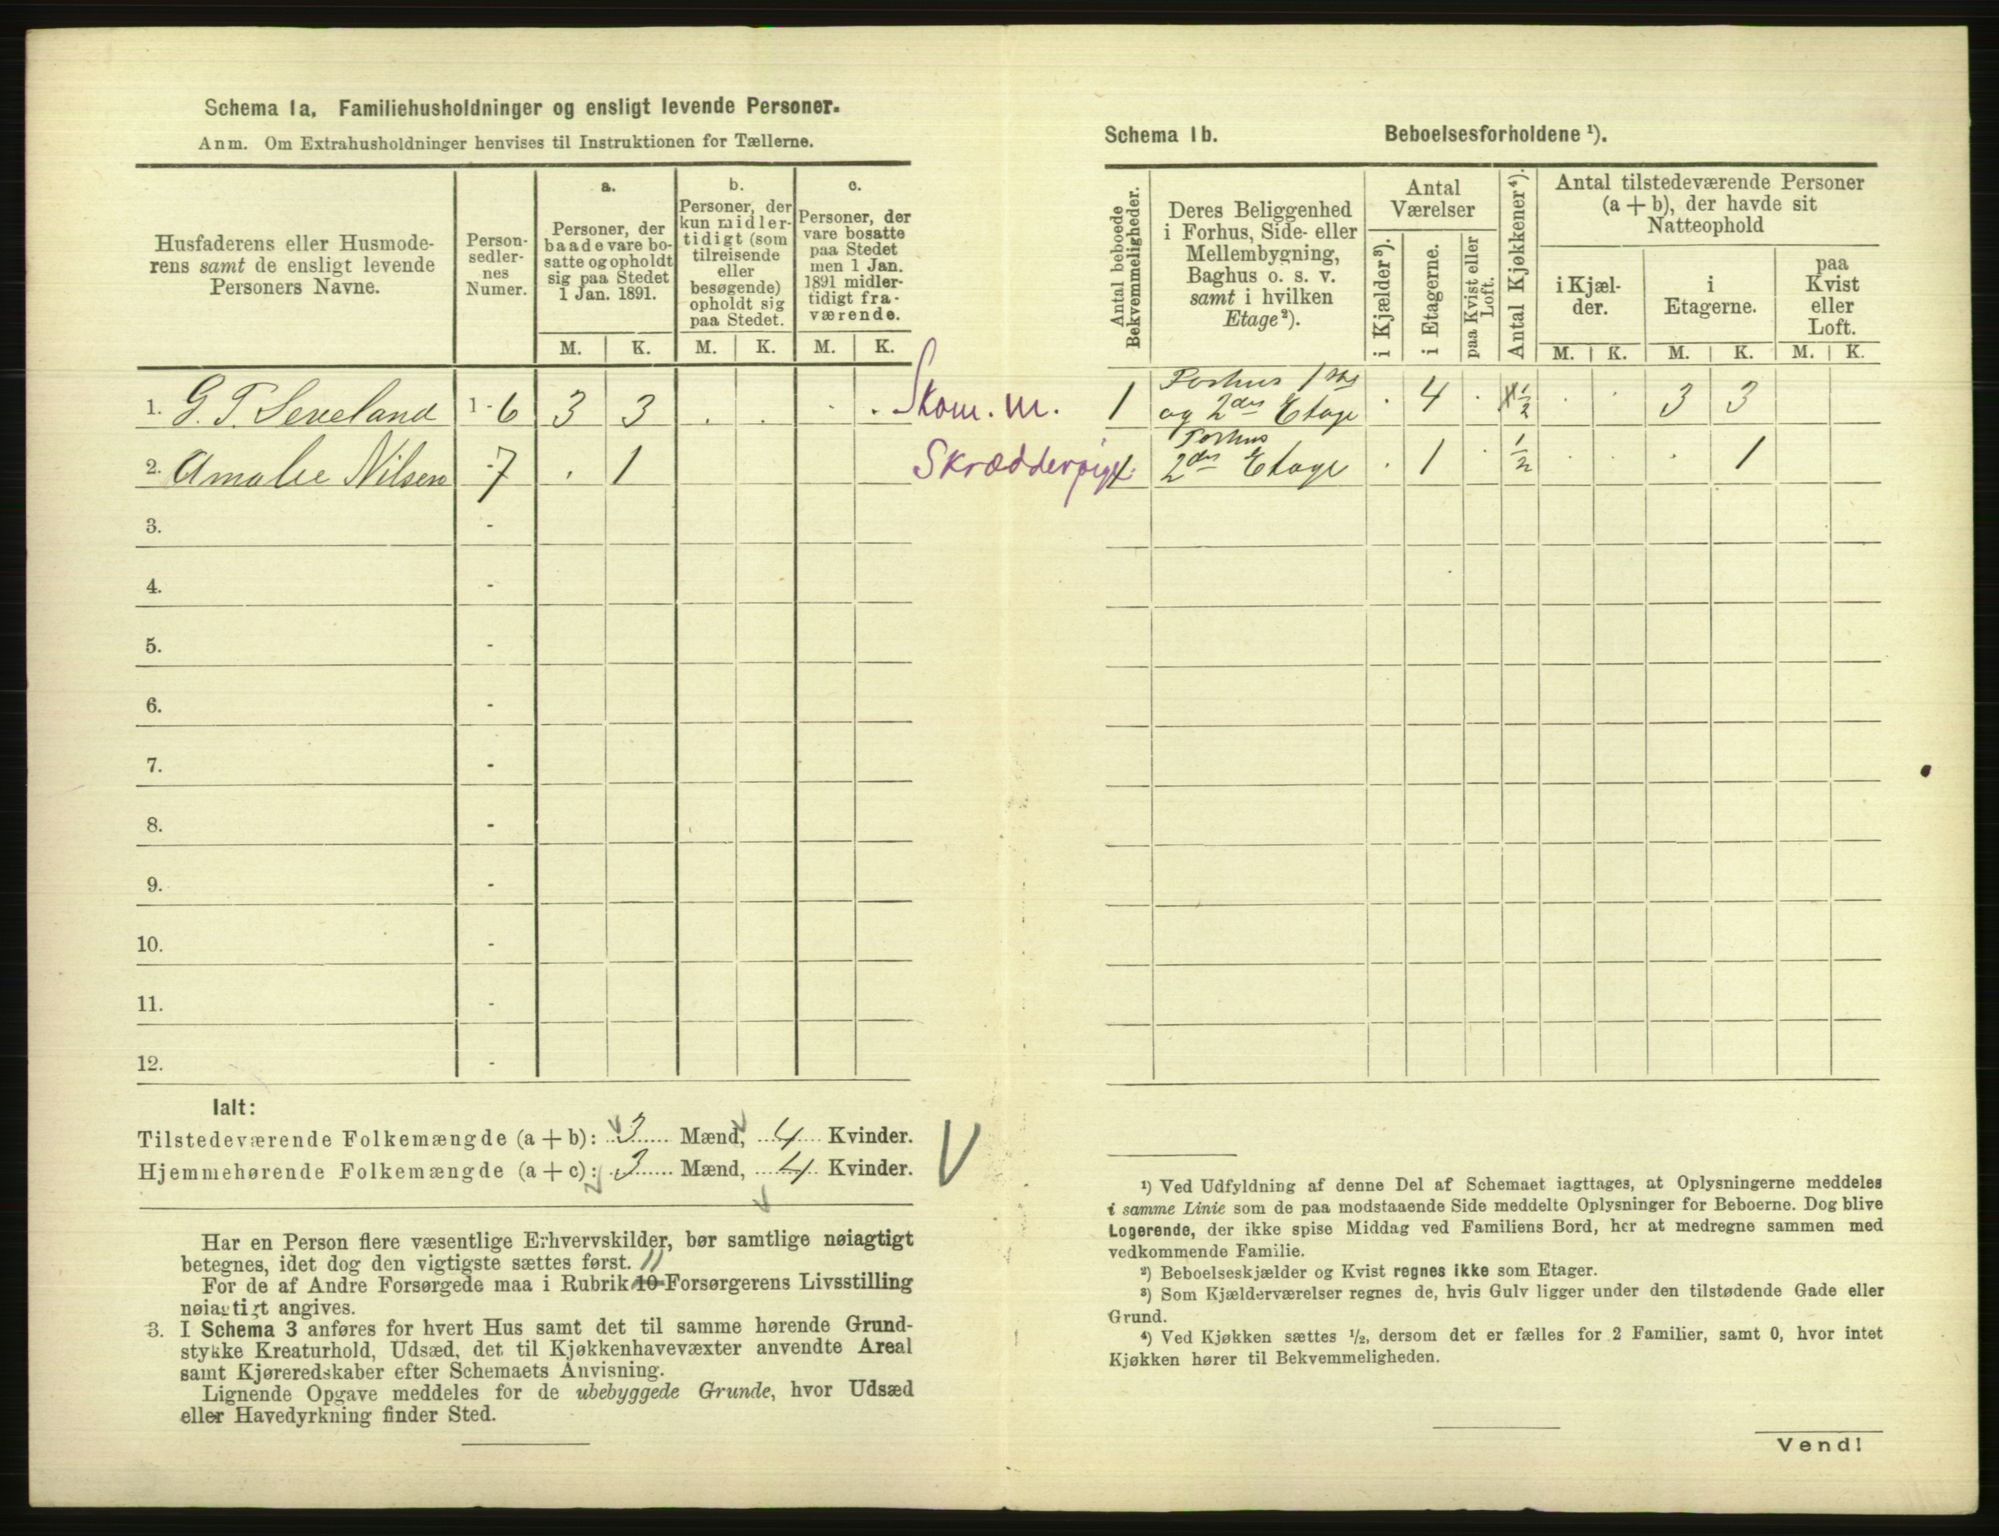 Schema 1a. Familiehusholdninger og ensligt levende Personer.
Anm. Om Extrahusholdninger henvises til Instruktionen for Tællerne.
Husfaderens eller Husmode-
rens samt de ensligt levende
Personers Navne.
Person-
sedler-
nes
Numer.
a.
Personer, der
baade vare bo-
satte og opholdt
sig paa Stedet
1 Jan. 1891.
b.
Personer, der
kun midler-
tidigt (som
tilreisende
eller
besøgende)
opholdt sig
paa Stedet.
c.
Personer, der
vare bosatte
paa Stedet
men 1 Jan.
1891 midler-
tidigt fra-
værende.
M. K. M. K. M. K.
1. G. T. Seveland 1 - 6 3 3 . . . . Skom. m.
2. Amalie Nilsen - 7 . 1 Skrædderpige
3. -
4. -
5. -
6. -
7. -
8. -
9. -
10. -
11. -
12. -
Ialt:
Tilstedeværende Folkemængde (a + b): 3 Mænd, 4 Kvinder.
Hjemmehørende Folkemængde (a + c): 3 Mænd, 4 Kvinder.
V
Har en Person flere væsentlige Erhvervskilder, bør samtlige nøiagtigt
betegnes, idet dog den vigtigste sættes først.
11
For de af Andre Forsørgede maa i Rubrik 10 Forsørgerens Livsstilling
nøiagtigt angives.
3. I Schema 3 anføres for hvert Hus samt det til samme hørende Grund-
stykke Kreaturhold, Udsæd, det til Kjøkkenhavevæxter anvendte Areal
samt Kjøreredskaber efter Schemaets Anvisning.
Lignende Opgave meddeles for de ubebyggede Grunde, hvor Udsæd
eller Havedyrkning finder Sted.
Schema 1b. Beboelsesforholdene ¹).
Antal beboede
Bekvemmeligheder.
Deres Beliggenhed
i Forhus, Side- eller
Mellembygning,
Baghus o. s. v.
samt i hvilken
Etage²).
Antal
Værelser
i Kjælder³).
i Etagerne.
paa Kvist eller
Loft.
Antal Kjøkkener⁴).
Antal tilstedeværende Personer
(a + b), der havde sit
Natteophold
i Kjæl-
der.
i
Etagerne.
paa
Kvist
eller
Loft.
M. K. M. K. M. K.
1 Forhus 1ste
og 2den Etage . 4 . ½ . . 3 3
1 Forhus
2den Etage . 1 . ½ . . . 1
¹) Ved Udfyldning af denne Del af Schemaet iagttages, at Oplysningerne meddeles
i samme Linie som de paa modstaaende Side meddelte Oplysninger for Beboerne. Dog blive
Logerende, der ikke spise Middag ved Familiens Bord, her at medregne sammen med
vedkommende Familie.
²) Beboelseskjælder og Kvist regnes ikke som Etager.
³) Som Kjælderværelser regnes de, hvis Gulv ligger under den tilstødende Gade eller
Grund.
⁴) Ved Kjøkken sættes ½, dersom det er fælles for 2 Familier, samt 0, hvor intet
Kjøkken hører til Bekvemmeligheden.
Vend!